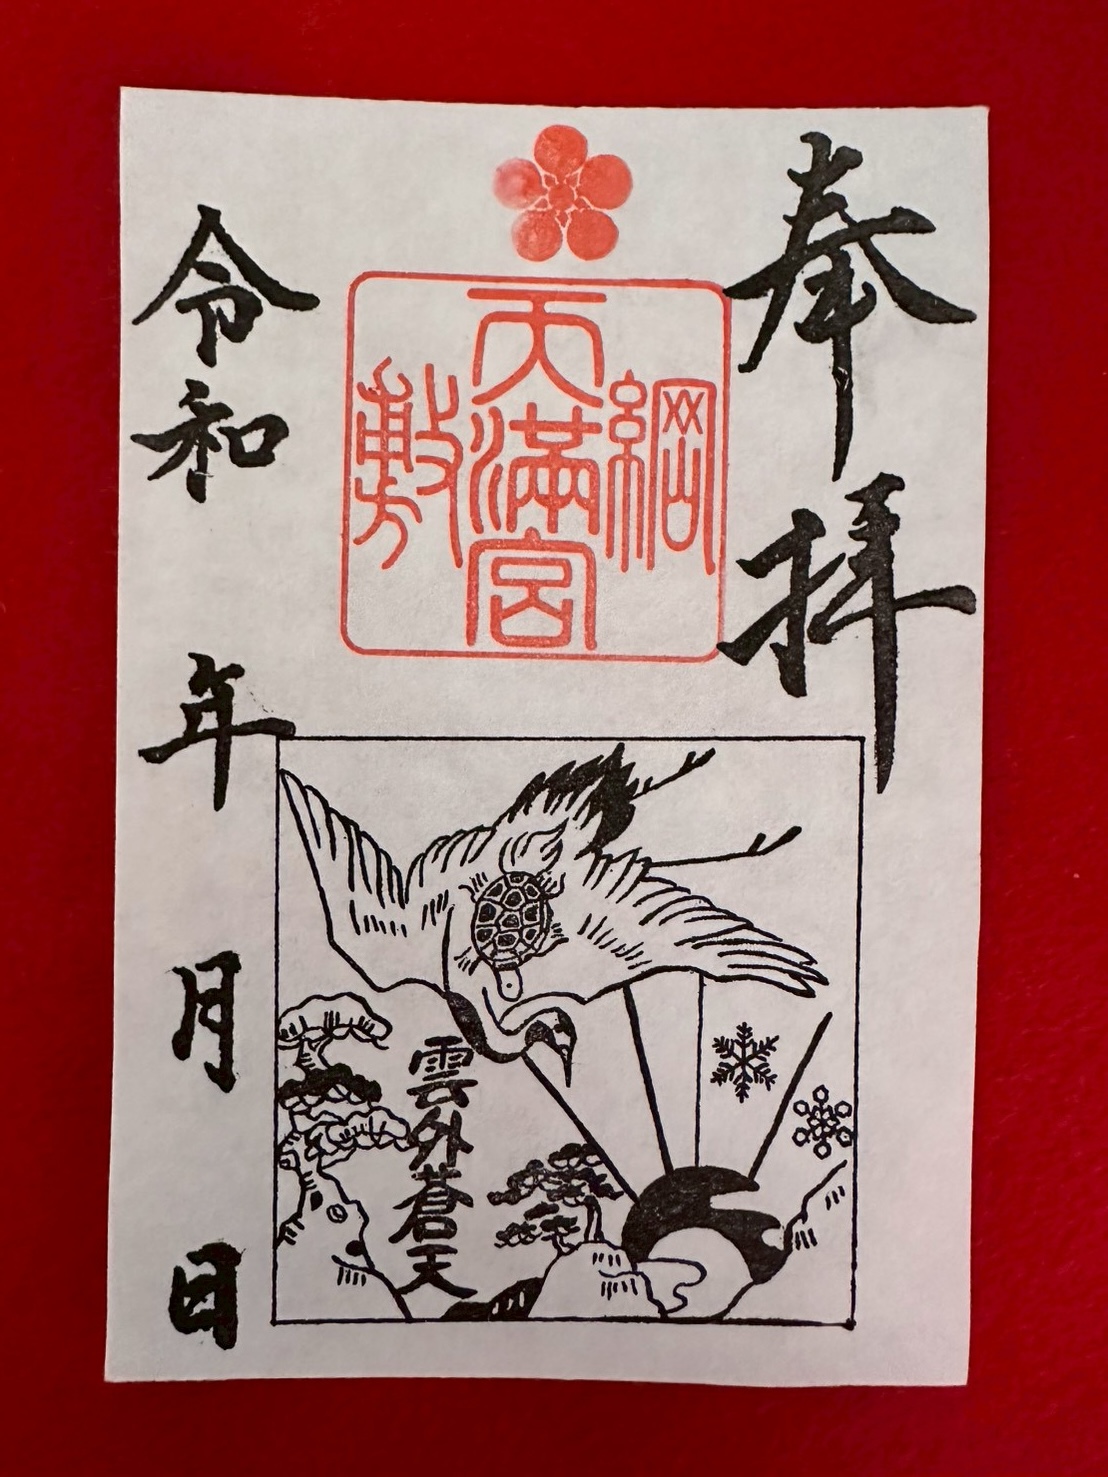 奉拝
綱
天満宮
敷
雲外蒼天
令和 年 月 日